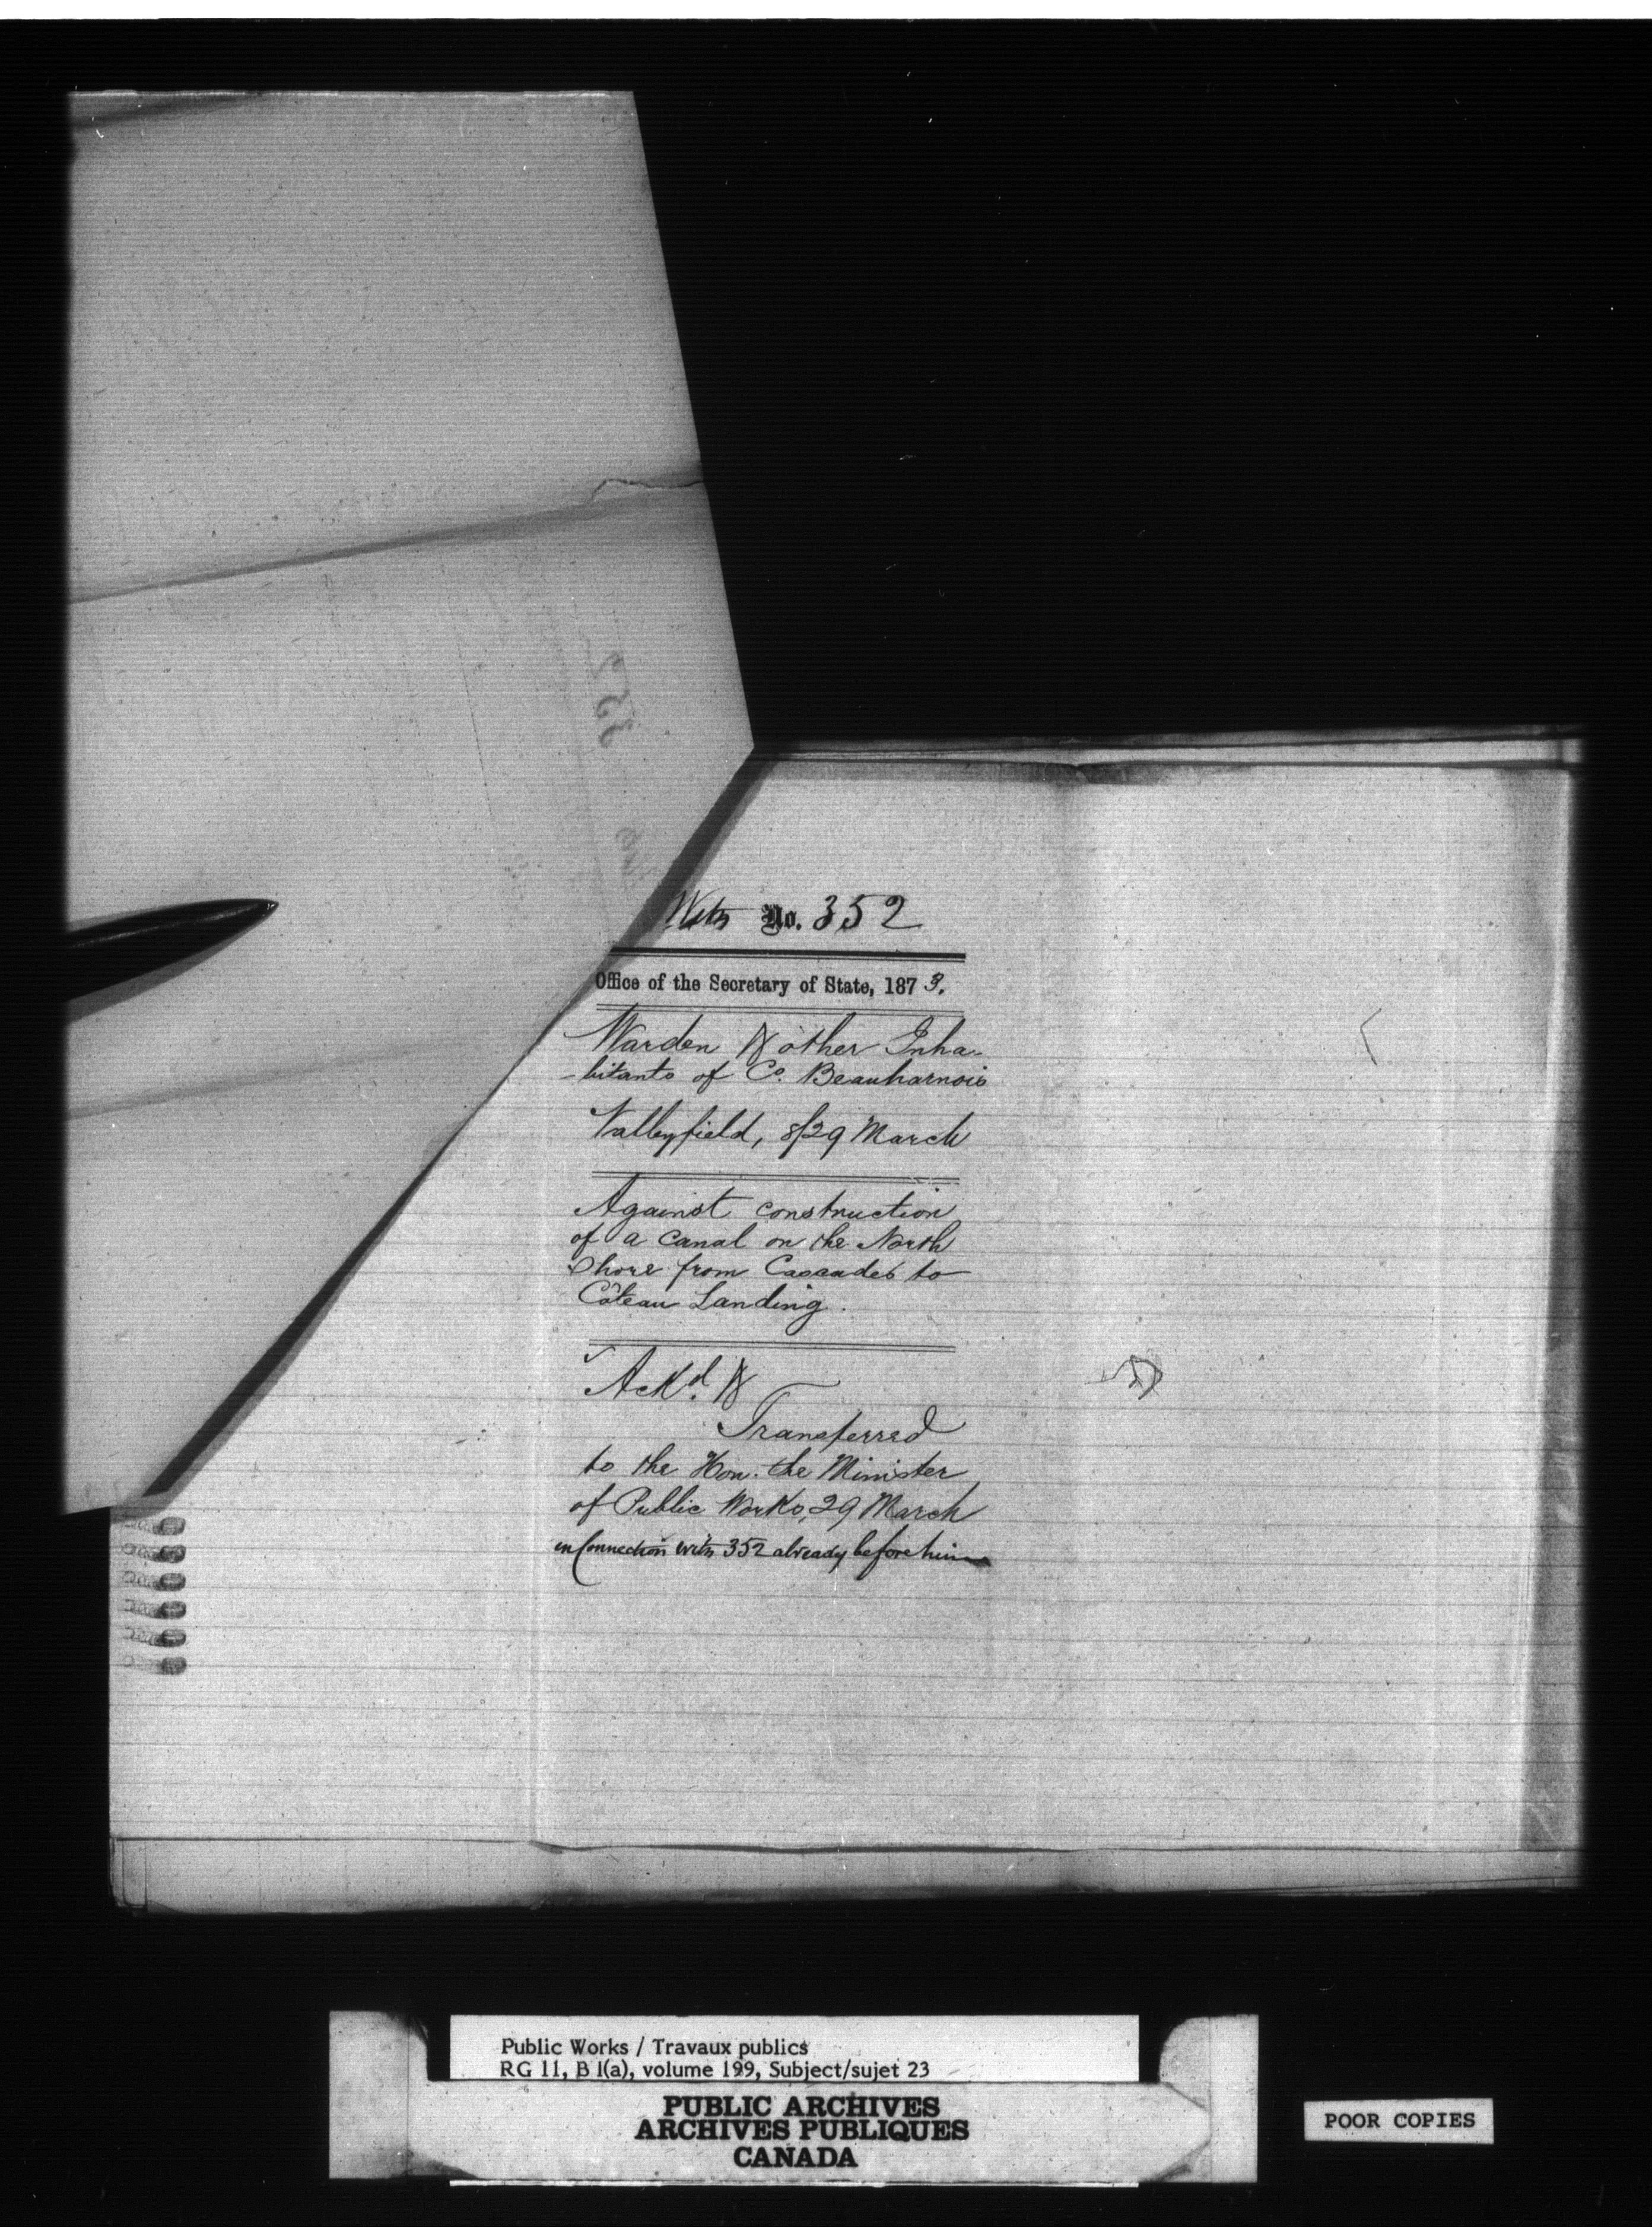 With No. 352
Office of the Secretary of State, 1873.
Warden & other Inha-
-bitants of Co. Beauharnois
Valleyfield, 8/29 March
Against construction
of a Canal on the North
Shore from Cascades to
Côteau Landing.
Ackd. &
Transferred
to the Hon. the Minister
of Public Works, 29 March
in Connection with 352 already before him
Public Works / Travaux publics
RG 11, B 1(a), volume 199, Subject/sujet 23
PUBLIC ARCHIVES
ARCHIVES PUBLIQUES
CANADA
POOR COPIES